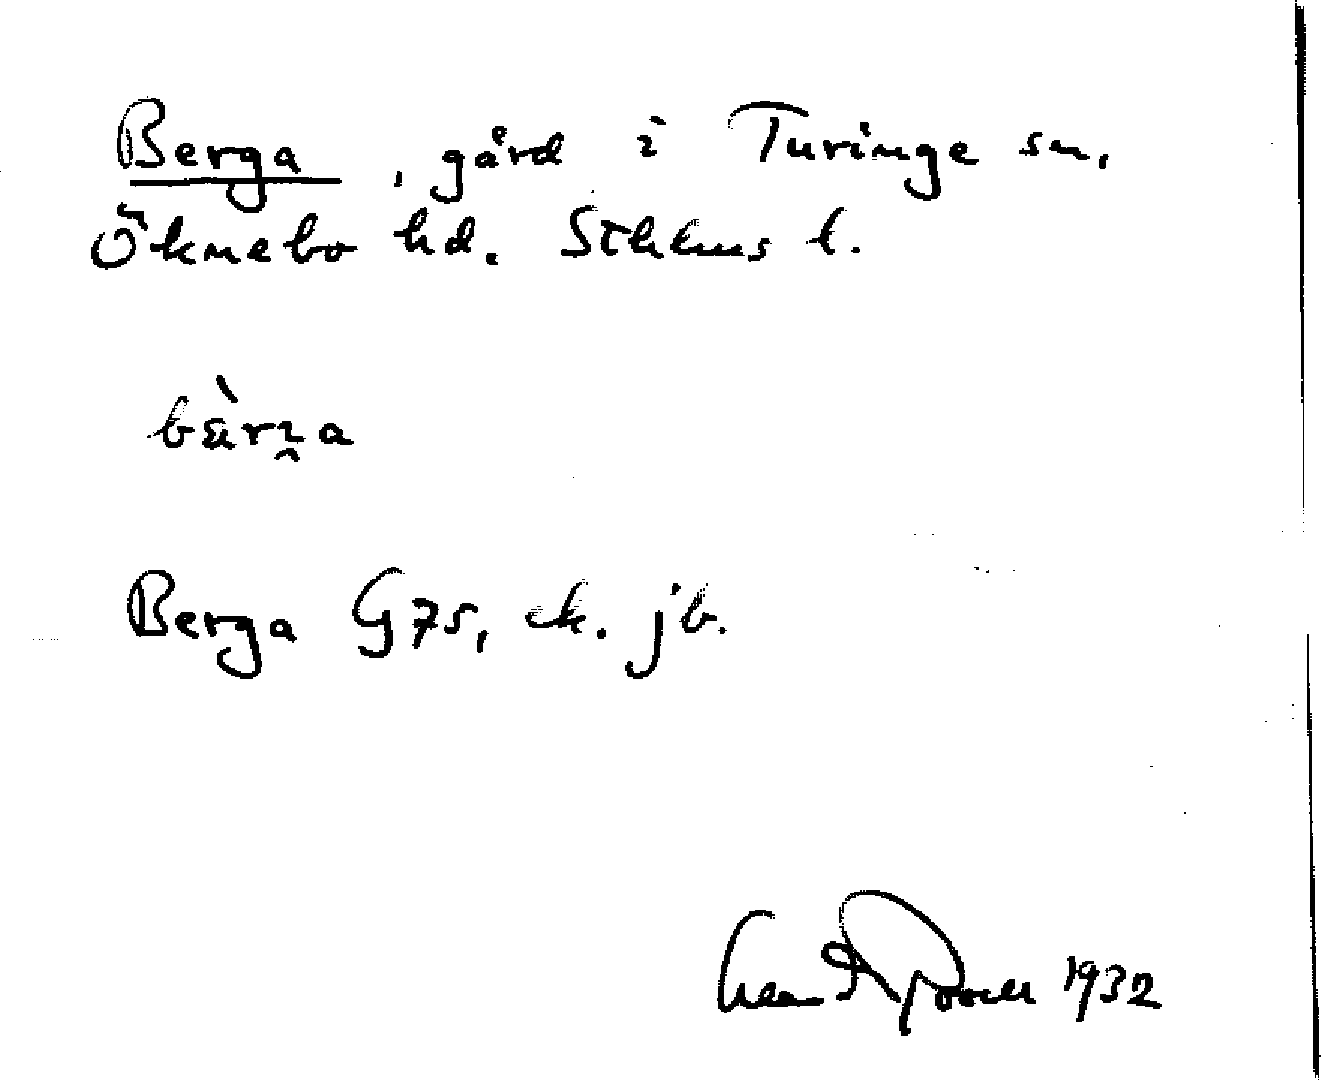 Berga, gård i Turinge sn,
Öknebo hd. Sthlms l.
Berga G 75, ek. jb.
1932